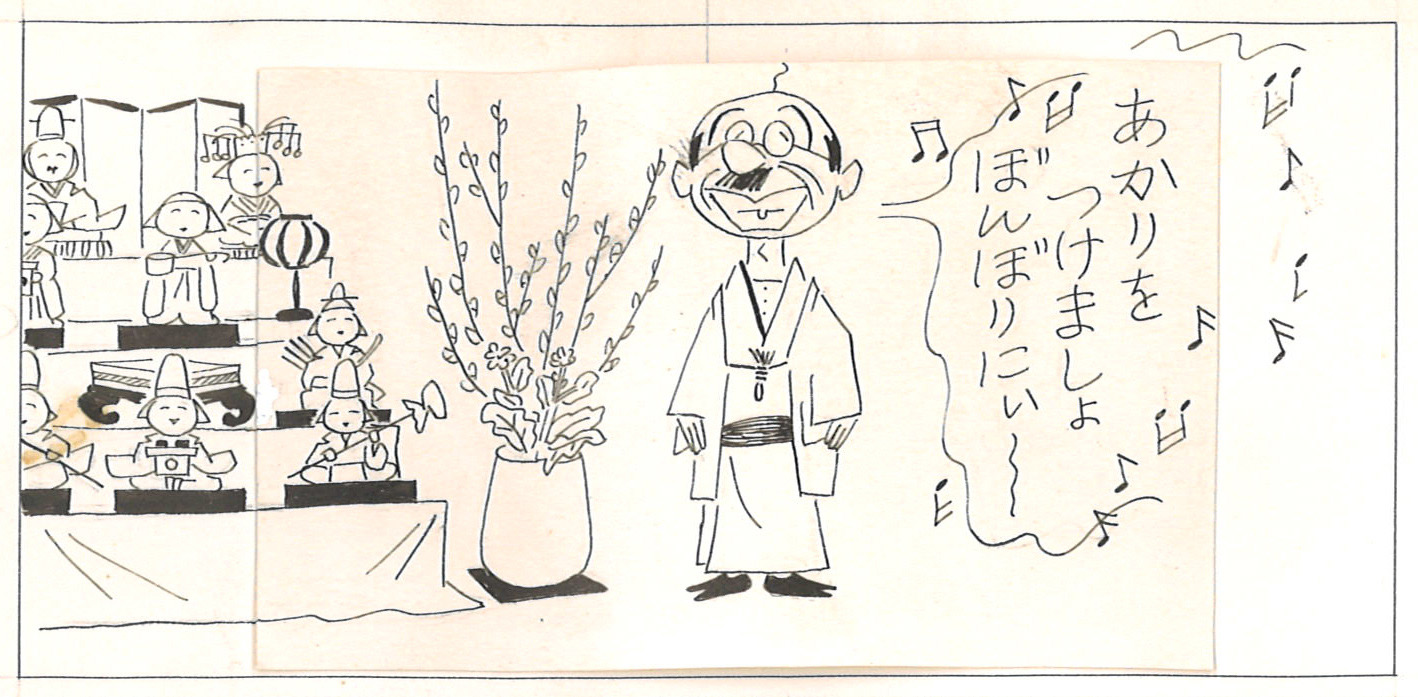 あかりを
つけましょ
ぼんぼりにぃ〜〜